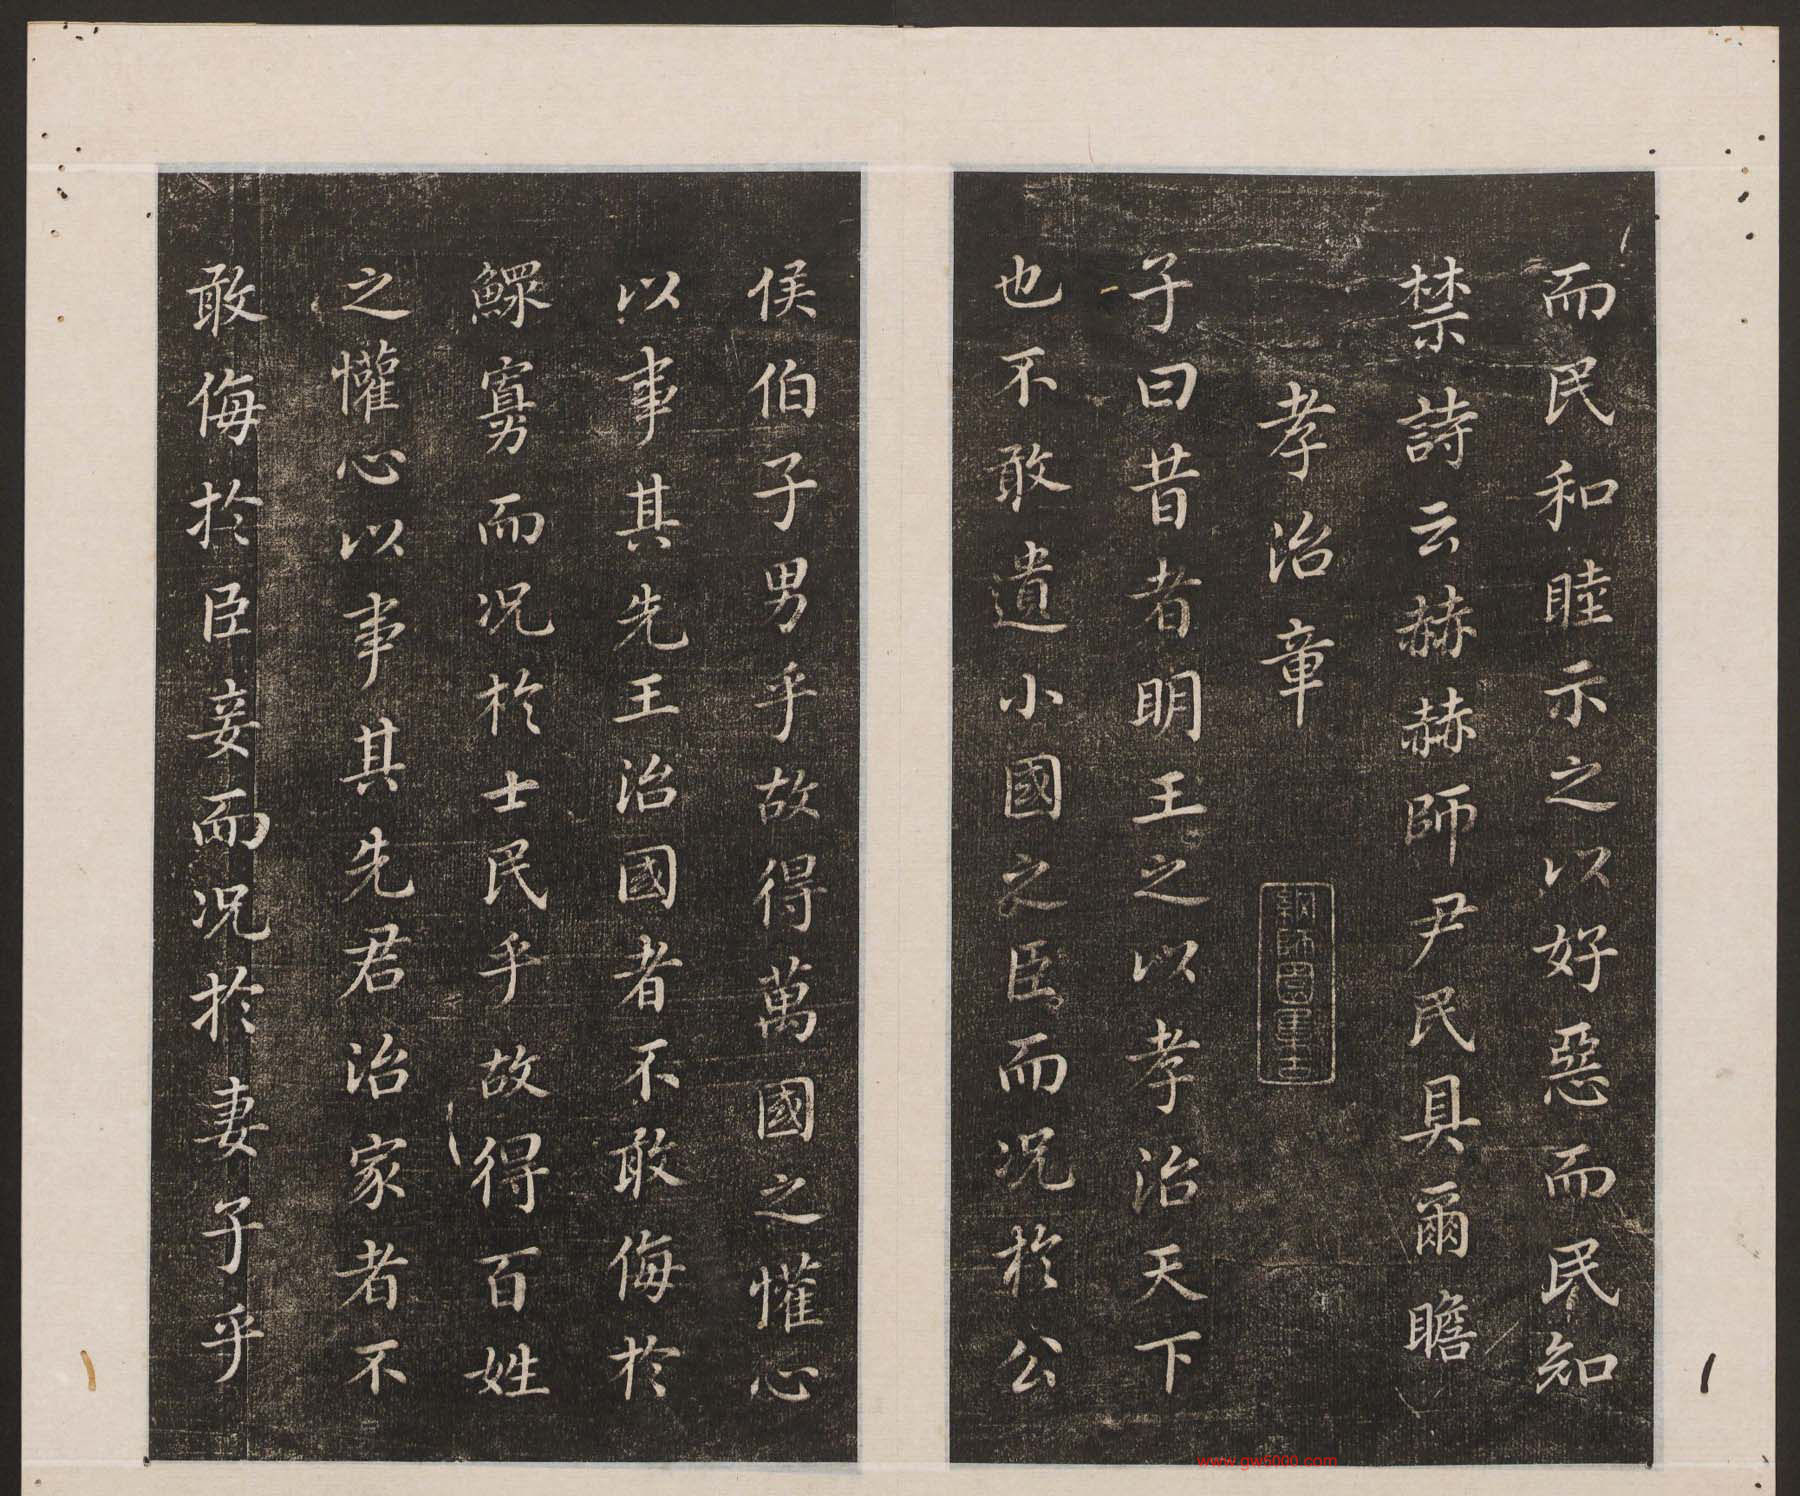 而民和睦示之以好惡而民知
禁詩云赫赫師尹民具爾瞻
孝治章
子曰昔者明王之以孝治天下
也不敢遺小國之臣而況於公
侯伯子男乎故得萬國之懽心
以事其先王治國者不敢侮於
鰥寡而況於士民乎故得百姓
之懽心以事其先君治家者不
敢侮於臣妾而況於妻子乎
www.gw5000.com